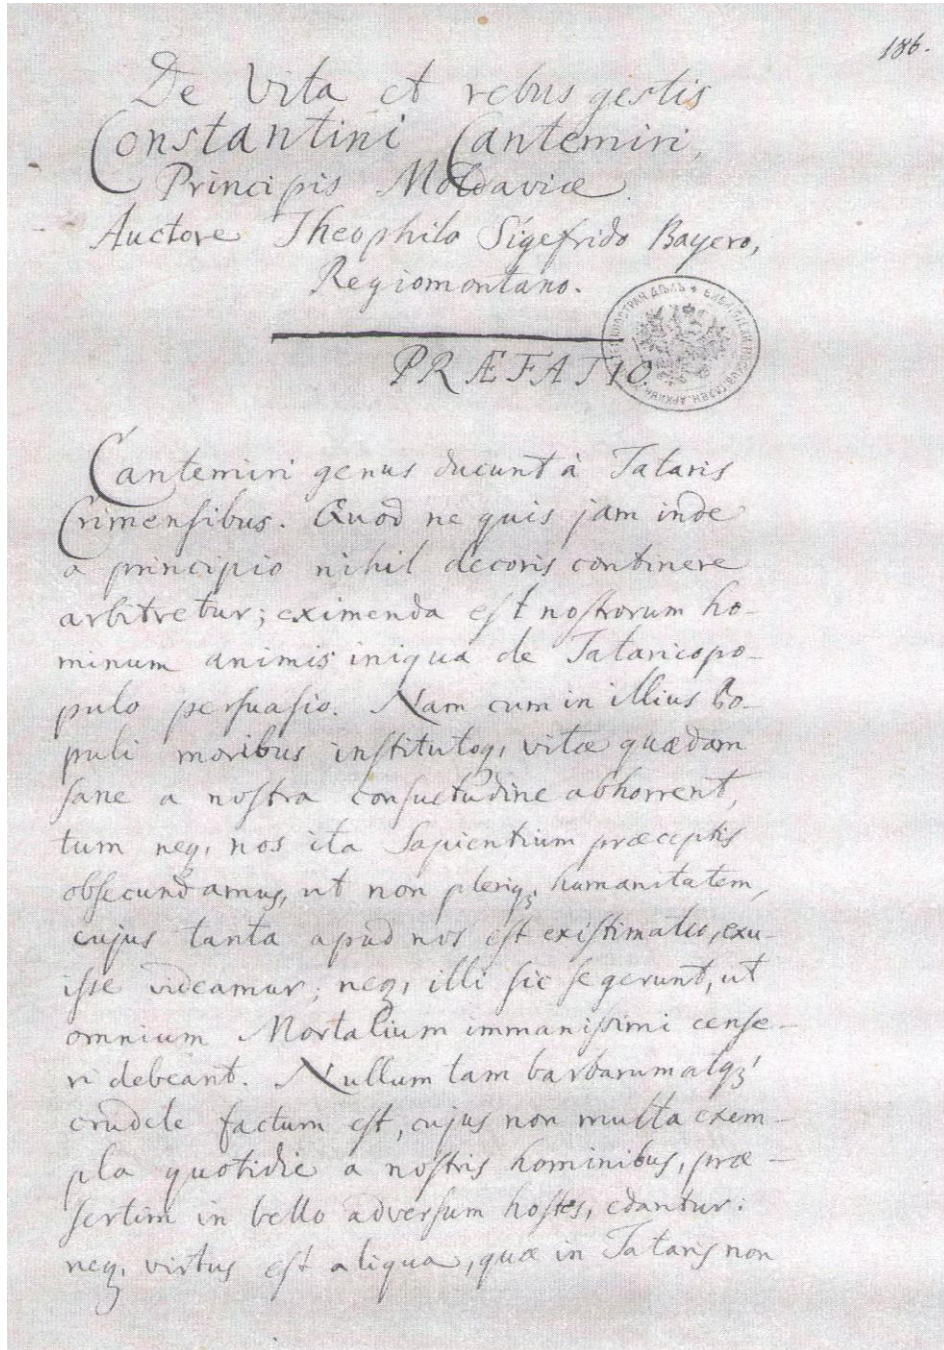 186.
De Vita et rebus gestis
Constantini Cantemiri,
Principis Moldaviæ.
Auctore Theophilo Sigefrido Bayero,
Regiomontano.
PRÆFATIO.
Cantemiri genus ducunt à Tataris
Crimensibus. Quod ne quis jam inde
a principio nihil decoris continere
arbitretur; eximenda est nostrorum ho-
minum animis iniqua de Tatarico po-
pulo persuasio. Nam cum in illius Po-
puli moribus institutoq, vitæ quædam
sane a nostra consuetudine abhorrent,
tum neq, nos ita Sapientium præceptis
obsecundamus, ut non pleriq, humanitatem,
cujus tanta apud nos est existimatio, exu-
isse videamur; neq, illi sic se gerunt, ut
omnium Mortalium immanissimi cense-
ri debeant. Nullum tam barbarum atq,
crudele factum est, cujus non multa exem-
pla quotidie a nostris hominibus, præ-
sertim in bello adversum hostes, edantur:
neq, virtus est aliqua, quæ in Tataris non